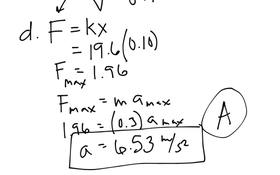 d. F = kx
= 19.6(0.10)
Fmax = 1.96
Fmax = m amax
1.96 = (0.3) amax
a = 6.53 m/s²
A